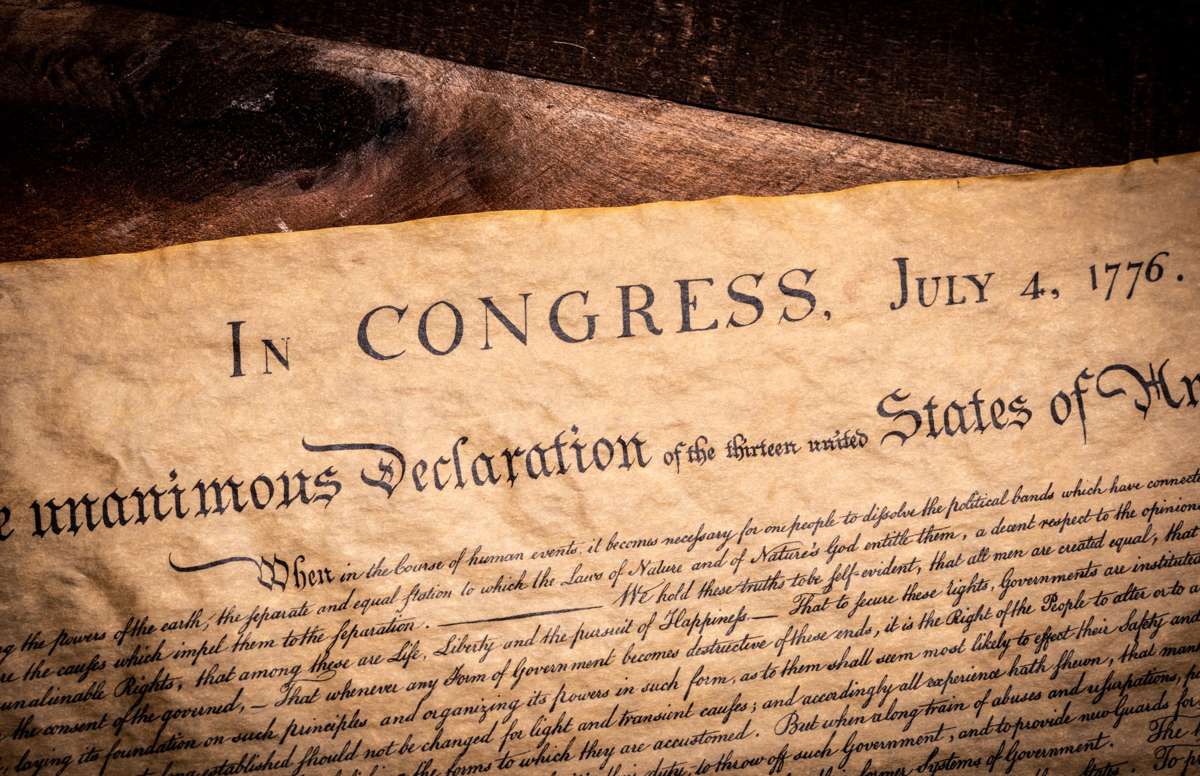 In CONGRESS, July 4, 1776.
unanimous Declaration of the thirteen united States of
When in the Course of human events, it becomes neceſsary for one people to diſsolve the political bands which have
the powers of the earth, the ſeparate and equal ſtation to which the Laws of Nature and of Nature's God entitle them, a decent respect to the opinions
the cauſes which impel them to the ſeparation. ——— We hold these truths to be ſelf-evident, that all men are created equal, that
unalienable Rights, that among theſe are Life, Liberty and the pursuit of Happineſs.— That to ſecure these rights, Governments are instituted
the consent of the governed, — That whenever any Form of Government becomes destructive of these ends, it is the Right of the People to alter or to
laying its foundation on such principles and organizing its powers in such form, as to them shall seem most likely to effect their Safety and
long established should not be changed for light and transient cauſes; and accordingly all experience hath ſhewn, that
the forms to which they are accustomed. But when a long train of abuses and uſurpations,
duty, to throw off such Government, and to provide new Guards for
former Systems of Government. The
States. To